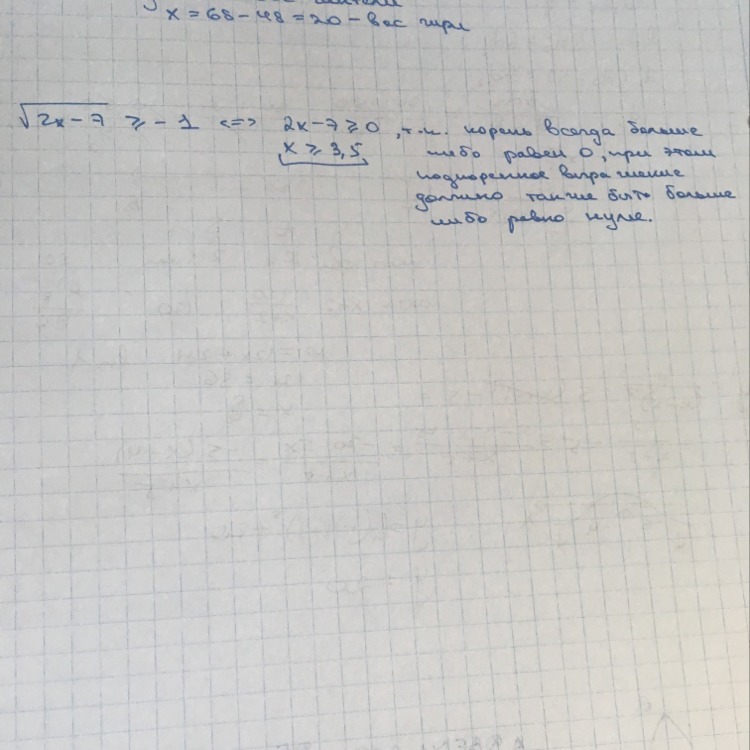 x = 68 - 48 = 20 - вес гири
√(2x - 7) ≥ - 1 <=> 2x - 7 ≥ 0, т.к. корень всегда больше
x ≥ 3,5 либо равен 0, при этом
подкоренное выражение
должно также быть больше
либо равно нулю.